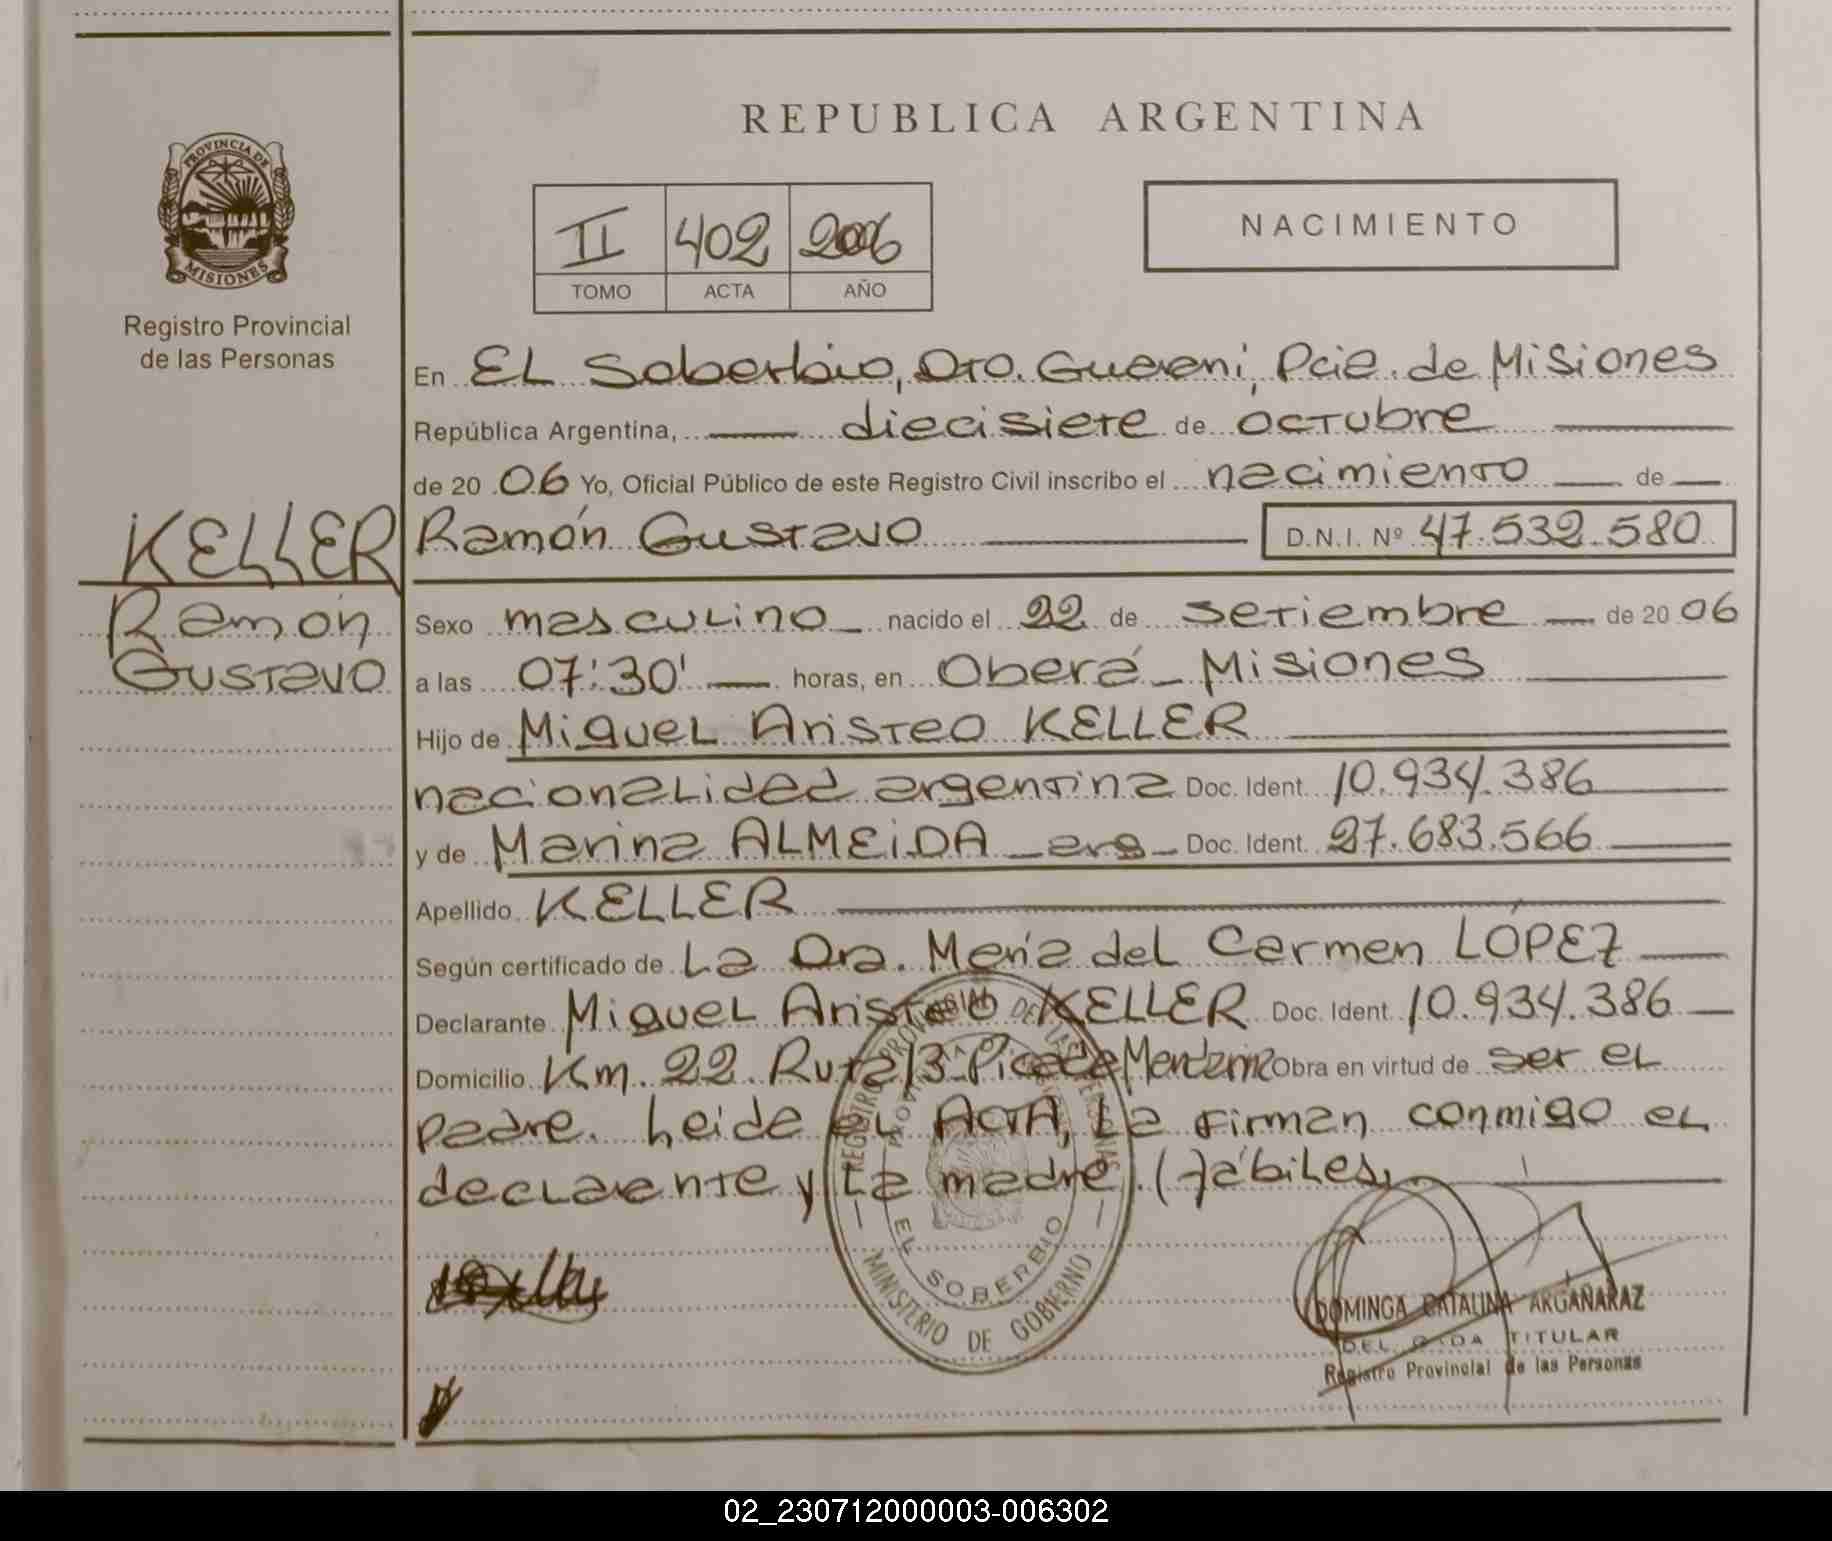 REPUBLICA ARGENTINA
PROVINCIA DE MISIONES
Registro Provincial
de las Personas
II 402 2006
TOMO ACTA AÑO
NACIMIENTO
En EL Soberbio, Dto. Guaraní, Pcia. de Misiones
República Argentina, diecisiete de octubre
de 20 06 Yo, Oficial Público de este Registro Civil inscribo el nacimiento de
KELLER
Ramón Gustavo
D.N.I. Nº 47.532.580
Ramón
Gustavo
Sexo masculino nacido el 22 de setiembre de 20 06
a las 07:30' horas, en Oberá - Misiones
Hijo de Miguel Aristeo KELLER
nacionalidad argentina Doc. Ident. 10.934.386
y de Marina ALMEIDA - arg - Doc. Ident. 27.683.566
Apellido KELLER
Según certificado de La Dra. María del Carmen LÓPEZ
Declarante Miguel Aristeo KELLER Doc. Ident. 10.934.386
Domicilio Km. 22 Ruta 13 - Picada Obra en virtud de ser el
padre. Leida el ACTA, La firman conmigo el
declarante y La madre. ( hábiles,
REGISTRO PROVINCIAL DE LAS PERSONAS
EL SOBERBIO
MINISTERIO DE GOBIERNO
DOMINGA CATALINA ARGAÑARAZ
DELEGADA TITULAR
Registro Provincial de las Personas
02_230712000003-006302